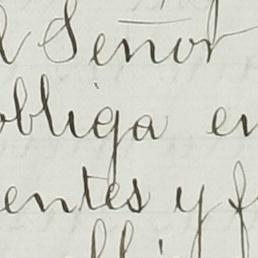 l Señor
obliga en
entes y f